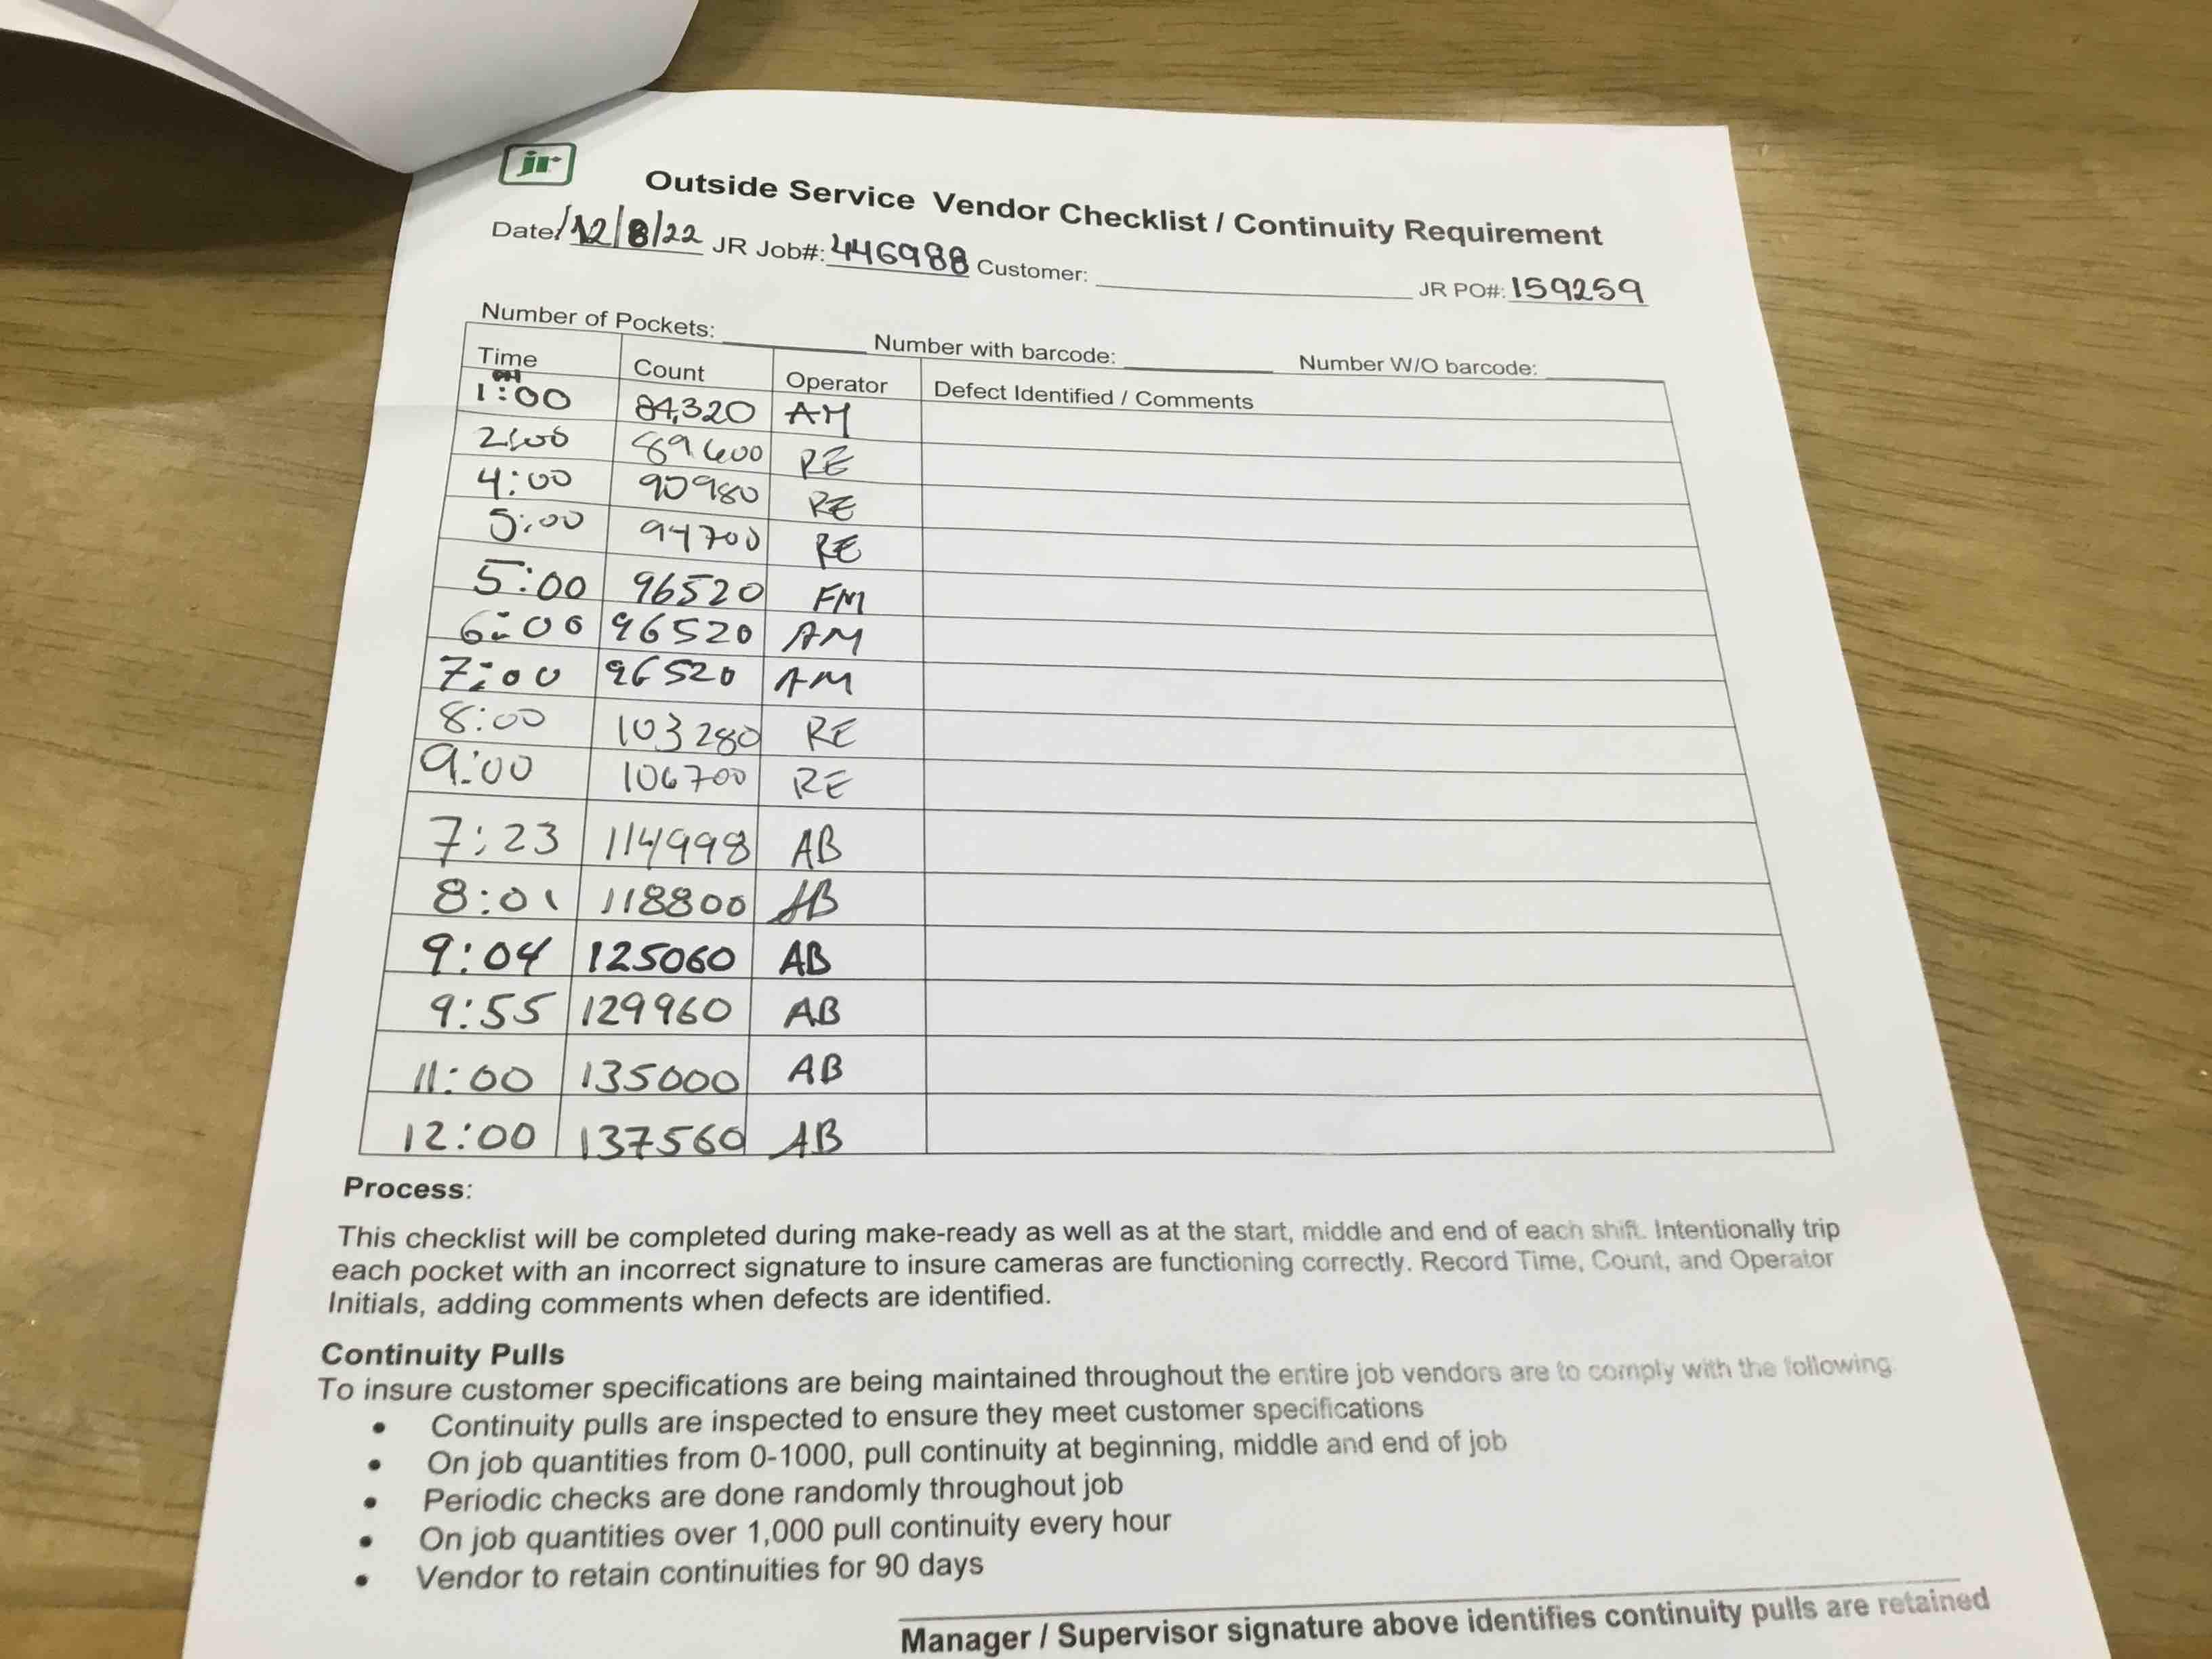 jr
Outside Service Vendor Checklist / Continuity Requirement
Date: 12/8/22 JR Job#: 446988 Customer: JR PO#: 159259
Number of Pockets: Number with barcode: Number W/O barcode:
Time Count Operator Defect Identified / Comments
1:00 84,320 AM
2:00 89600 RE
4:00 90980 RE
5:00 94700 RE
5:00 96520 FM
6:00 96520 AM
7:00 96520 AM
8:00 103280 RE
9:00 106700 RE
7:23 114998 AB
8:01 118800 AB
9:04 125060 AB
9:55 129960 AB
11:00 135000 AB
12:00 137560 AB
Process:
This checklist will be completed during make-ready as well as at the start, middle and end of each shift. Intentionally trip
each pocket with an incorrect signature to insure cameras are functioning correctly. Record Time, Count, and Operator
Initials, adding comments when defects are identified.
Continuity Pulls
To insure customer specifications are being maintained throughout the entire job vendors are to comply with the following
• Continuity pulls are inspected to ensure they meet customer specifications
• On job quantities from 0-1000, pull continuity at beginning, middle and end of job
• Periodic checks are done randomly throughout job
• On job quantities over 1,000 pull continuity every hour
• Vendor to retain continuities for 90 days
Manager / Supervisor signature above identifies continuity pulls are retained